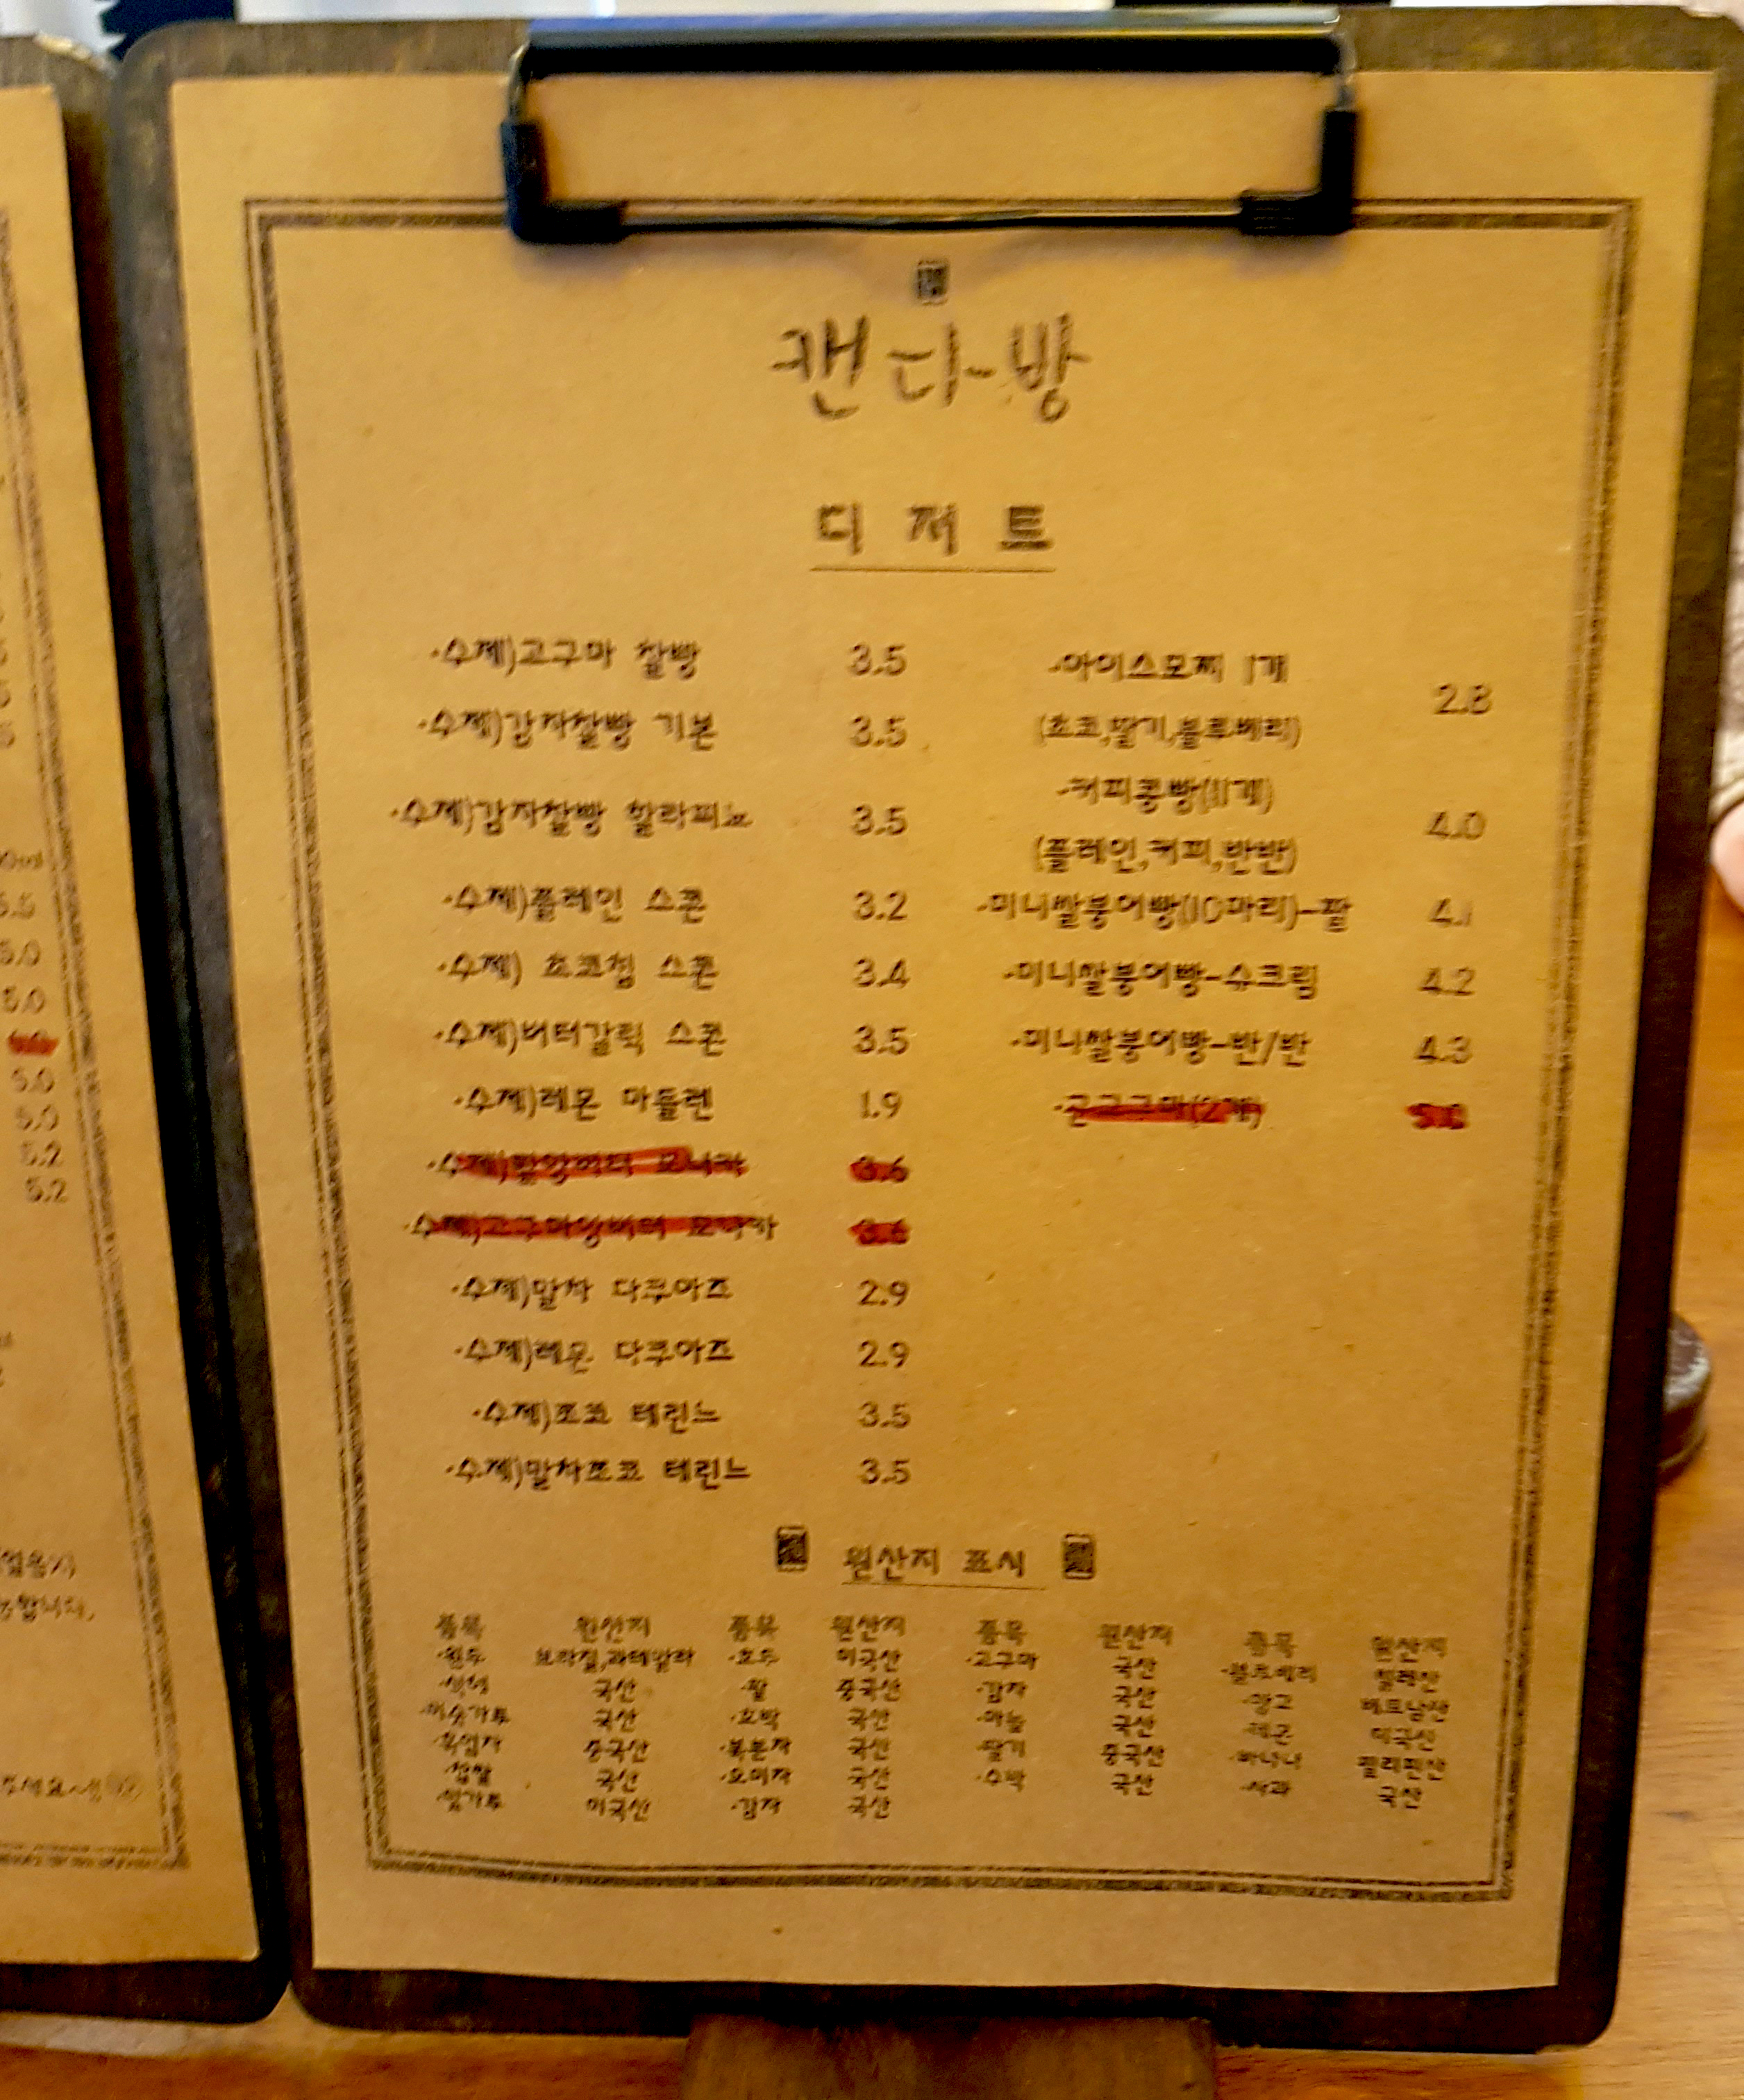 캔디-방
디저트
·수제)고구마 찰빵 3.5
·수제)감자찰빵 기본 3.5
·수제)감자찰빵 할라피뇨 3.5
·수제)플레인 스콘 3.2
·수제) 초코칩 스콘 3.4
·수제)버터갈릭 스콘 3.5
·수제)레몬 마들렌 1.9
·수제)팥앙버터 모나카 3.6
·수제)고구마앙버터 모나카 3.6
·수제)말차 다쿠아즈 2.9
·수제)레몬 다쿠아즈 2.9
·수제)쪼꼬 테린느 3.5
·수제)말차쪼꼬 테린느 3.5
·아이스모찌 1개 2.8
(초코,딸기,블루베리)
·커피콩빵(11개) 4.0
(플레인,커피,반반)
·미니쌀붕어빵(10마리)-팥 4.1
·미니쌀붕어빵-슈크림 4.2
·미니쌀붕어빵-반/반 4.3
·군고구마(2개) 5.0
원산지 표시
품목 원산지 품목 원산지 품목 원산지 품목 원산지
·원두 브라질,과테말라 ·호두 미국산 ·고구마 국산 ·블루베리 칠레산
국산 ·팥 중국산 ·감자 국산 ·망고 베트남산
국산 ·호박 국산 ·마늘 국산 ·레몬 미국산
·흑임자 중국산 ·복분자 국산 ·딸기 중국산 ·바나나 필리핀산
·찹쌀 국산 ·오미자 국산 ·수박 국산 ·사과 국산
·밀가루 미국산 ·감자 국산
5.0
5.0
5.0
5.0
5.2
5.2